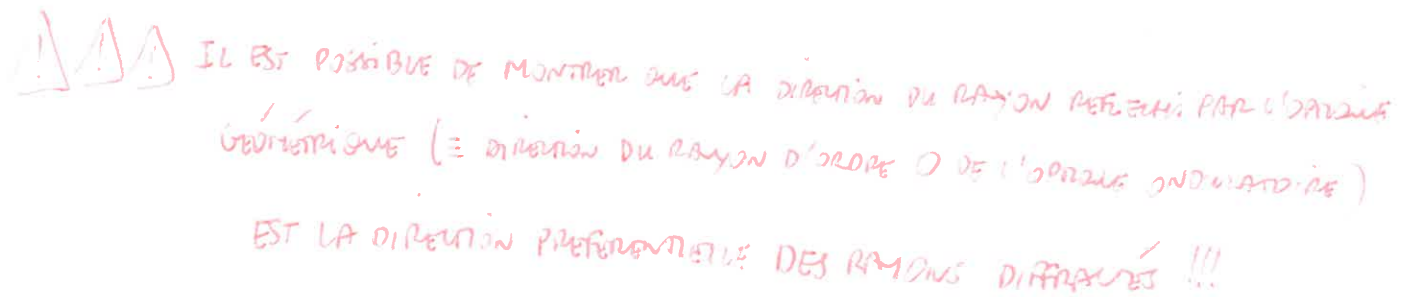 ! ! ! IL EST POSSIBLE DE MONTRER QUE LA DIRECTION DU RAYON REFLECHI PAR L'OPTIQUE
GÉOMÉTRIQUE (≡ DIRECTION DU RAYON D'ORDRE 0 DE L'OPTIQUE ONDULATOIRE)
EST LA DIRECTION PREFERENTIELLE DES RAYONS DIFFRACTÉS !!!